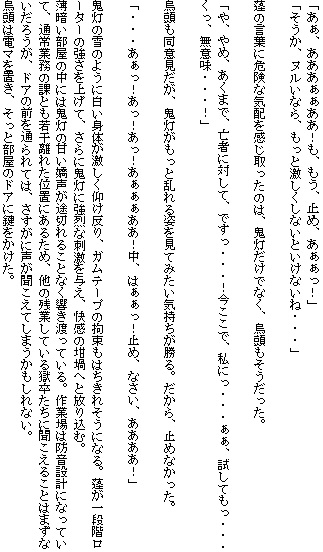 「あぁ、あああぁぁぁああ！も、もう、止め、あぁぁっ！」
「そうか、ヌルいなら、もっと激しくしないといけないね・・・」
蓬の言葉に危険な気配を感じ取ったのは、鬼灯だけでなく、烏頭もそうだった。
「や、やめ、あくまで、亡者に対して、ですっ・・・！今ここで、私にっ・・・ぁぁ、試してもっ・・・
くっ、無意味・・・！」
烏頭も同意見だが、鬼灯がもっと乱れる姿を見てみたい気持ちが勝る。だから、止めなかった。
「・・・あぁっ！あっ！あっ！あぁぁぁああ！中、はぁぁっ！止め、なさい、ああああ！」
鬼灯の雪のように白い身体が激しく仰け反り、ガムテープの拘束もはちきれそうになる。蓬が一段階ロ
ーターの強さを上げて、さらに鬼灯に強烈な刺激を与え、快感の坩堝へと放り込む。
薄暗い部屋の中には鬼灯の甘い嬌声が途切れることなく響き渡っている。作業場は防音設計になってい
て、通常業務の課とも若干離れた位置にあるため、他の残業している獄卒たちに聞こえることはまずな
いだろうが、ドアの前を通られては、さすがに声が聞こえてしまうかもしれない。
烏頭は電マを置き、そっと部屋のドアに鍵をかけた。